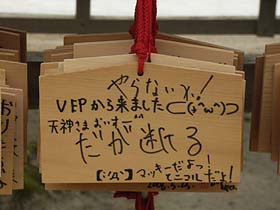 やらないか！
VEPから来ました⊂(^ω^)⊃
天神さまおいすー
だが断る
[:^Д^] マッキーだよっ！
モニコルだよ！